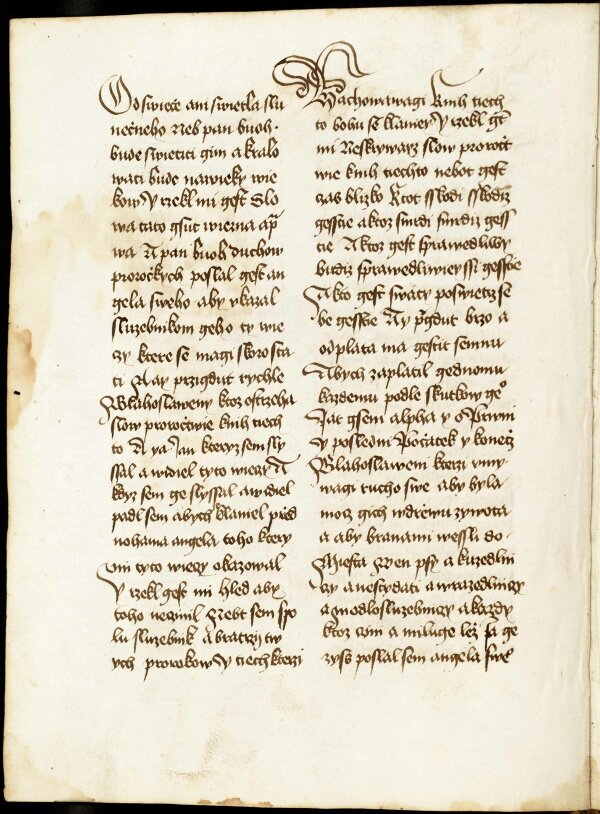 Od swiecze ani swietla slu
neczneho Neb pan buoh
bude swietiti gim a kralo
wati bude nawieky wie
kow Y rzekl mi gest Slo
wa tato gsut wierna a p̄
wa A pan buoh duchow
prorockych poslal gest an
gela sweho aby vkazal
sluzebnikom geho ty wie
czy ktere se magi skoro sta
ti A ay przigdut rychle
Blahoslaweny ktoz ostrzeha
slow proroctwie knih tiech
to A ya Jan kteryz sem sly
ssal a widiel tyto wieczy A
kdyz sem ge slyssal a widiel
padl sem abych klaniel pred
nohama angela toho ktery
mi tyto wieczy okazowal
Y rzekl gest mi hled aby
toho neczinil Nebt sem spo
lu sluzebnik a bratrzij tw
ych prorokow Y tiech kterzi
zachowawagi knih tiech
to bohu se klaniey Y rzekl gt
mi Neskrywarz slow proroct
wie knih tiechto nebot gest
czas blizko Ktot sskodi sskodiz
gesstie a ktoz smrdi smrdiz gess
tie A ktoz gest sprawedliwy
budiz sprawedliwiessi gesstie
A kto gest swaty poswietz se
be gesstie Ay p̄gdut brzo a
odplata ma gestit semnu
Abych zaplatil gednomu
kazdemu podle skutkow geo
Jat gsem alpha y o Prwni
y posledni Poczatek y konecz
Blahoslaweni kterzi vmy
wagi rucho swe aby byla
mocz gich w drzewu zywota
a aby branami wessli do
Miesta Wen psy a kuzedlni
czy a nestydati a wrazedlniczy
a modlosluzebniczy a kazdy
ktoz czini a miluge lez Ja ge
zyss poslal sem angela swe